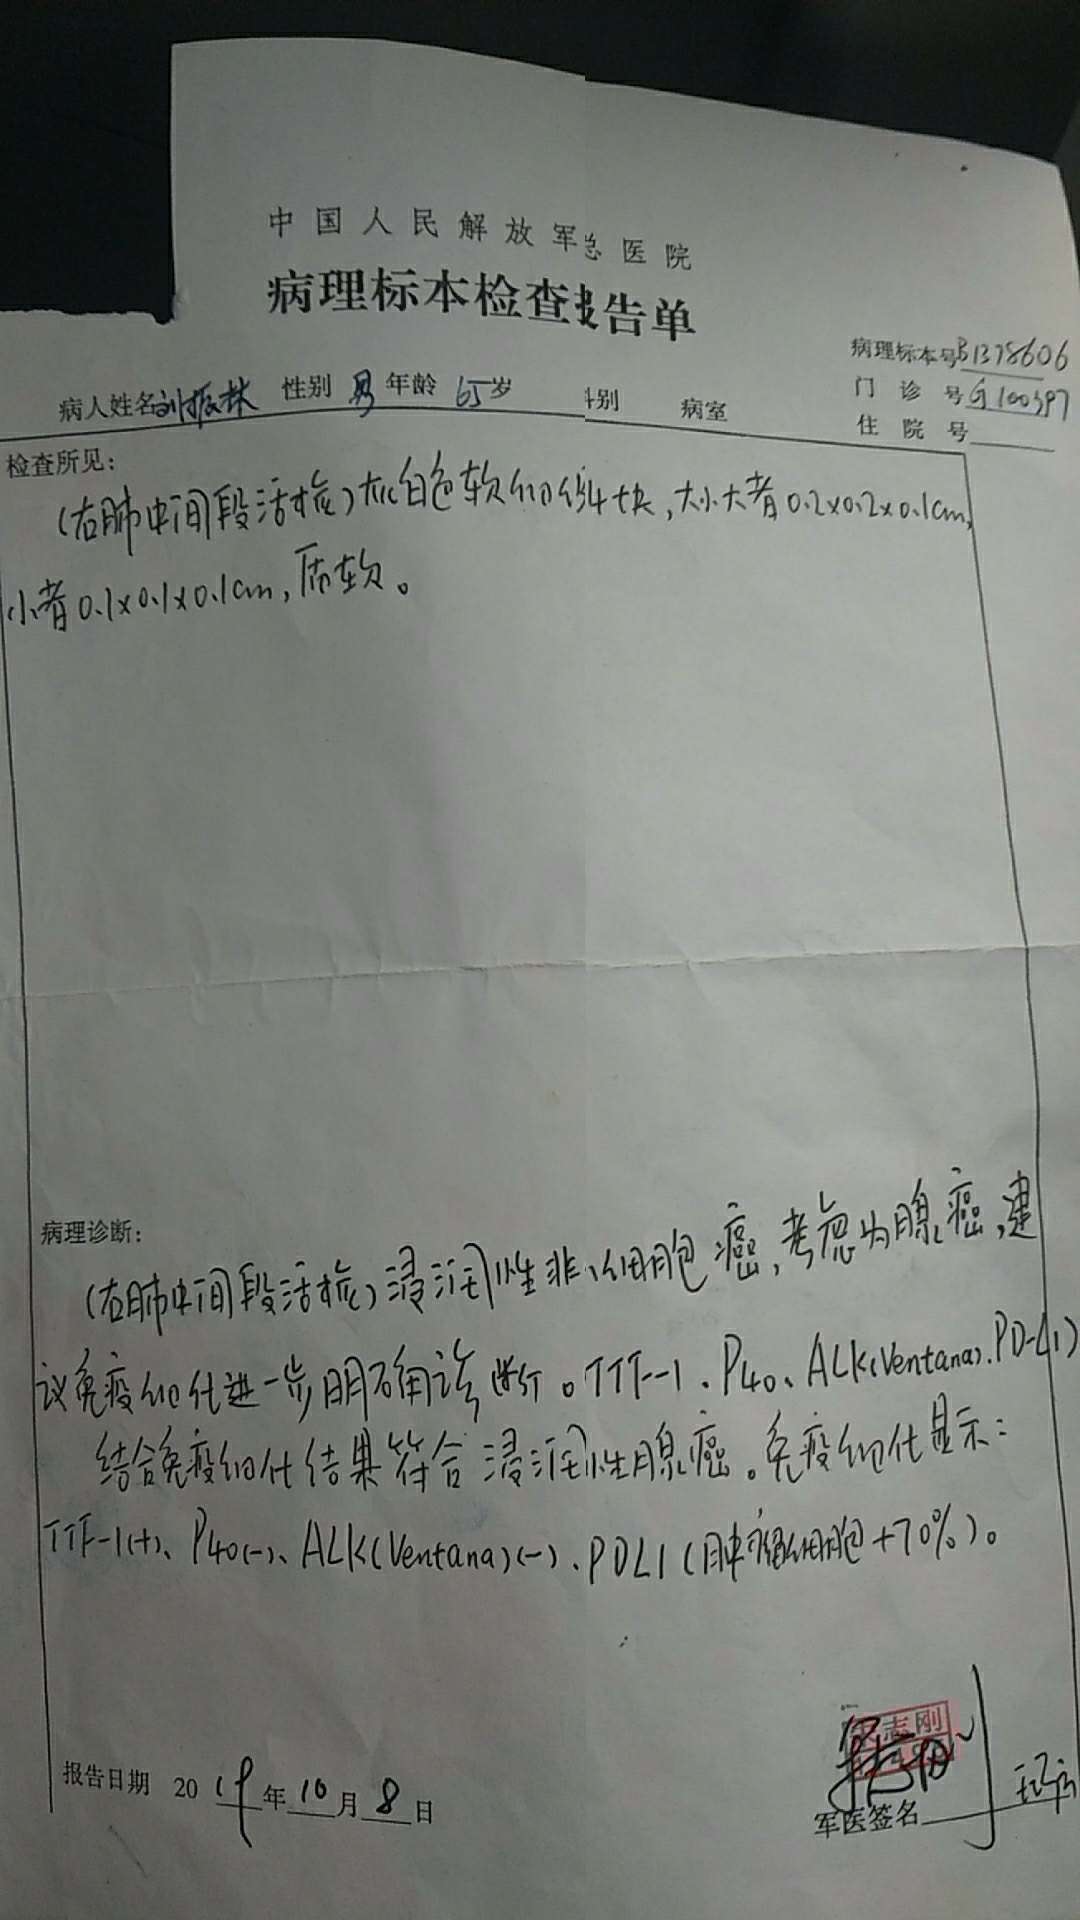 中国人民解放军总医院
病理标本检查报告单
病理标本号B1378606
门诊号G100397
住院号
病人姓名刘振林 性别 男 年龄 65岁 科别 病室
检查所见：
(右肺中间段活检)灰白色软组织4块，大小大者0.2x0.2x0.1cm，
小者0.1x0.1x0.1cm，质软。
病理诊断：
(右肺中间段活检)浸润性非小细胞癌，考虑为腺癌，建
议免疫组化进一步明确诊断。TTF-1、P40、ALK(Ventana)、PD-L1)
结合免疫组化结果符合浸润性腺癌。免疫组化显示：
TTF-1(+)、P40(-)、ALK(Ventana)(-)、PDL1(肿瘤细胞+70%)。
志刚
报告日期 2019年10月8日
军医签名